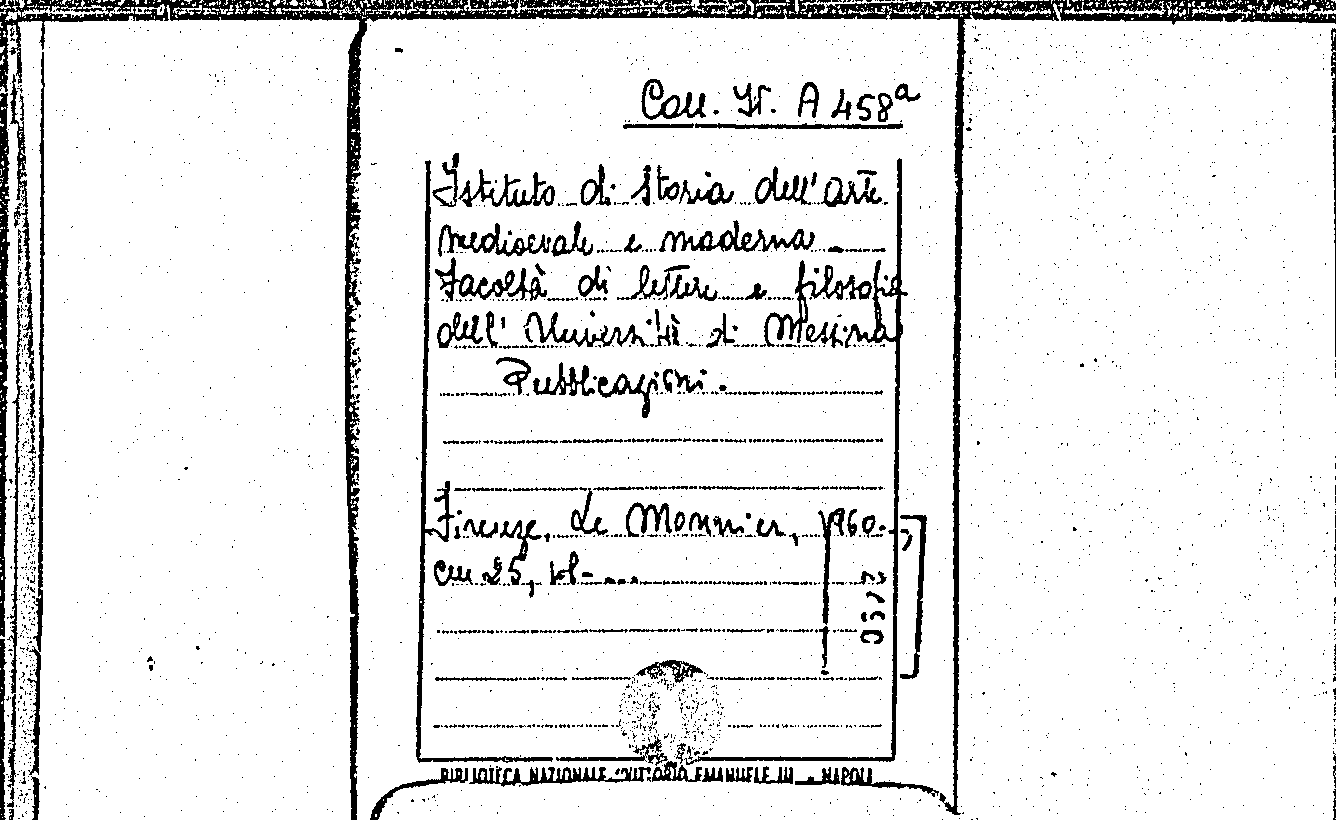 Coll. It. A 458a
Istituto di Storia dell'arte
medioevale e moderna
Facoltà di lettere e filosofia
dell'Università di Messina
Pubblicazioni.
Firenze, Le Monnier, 1960-
cm 25, vl-...
BIBLIOTECA NAZIONALE "VITTORIO EMANUELE III" - NAPOLI